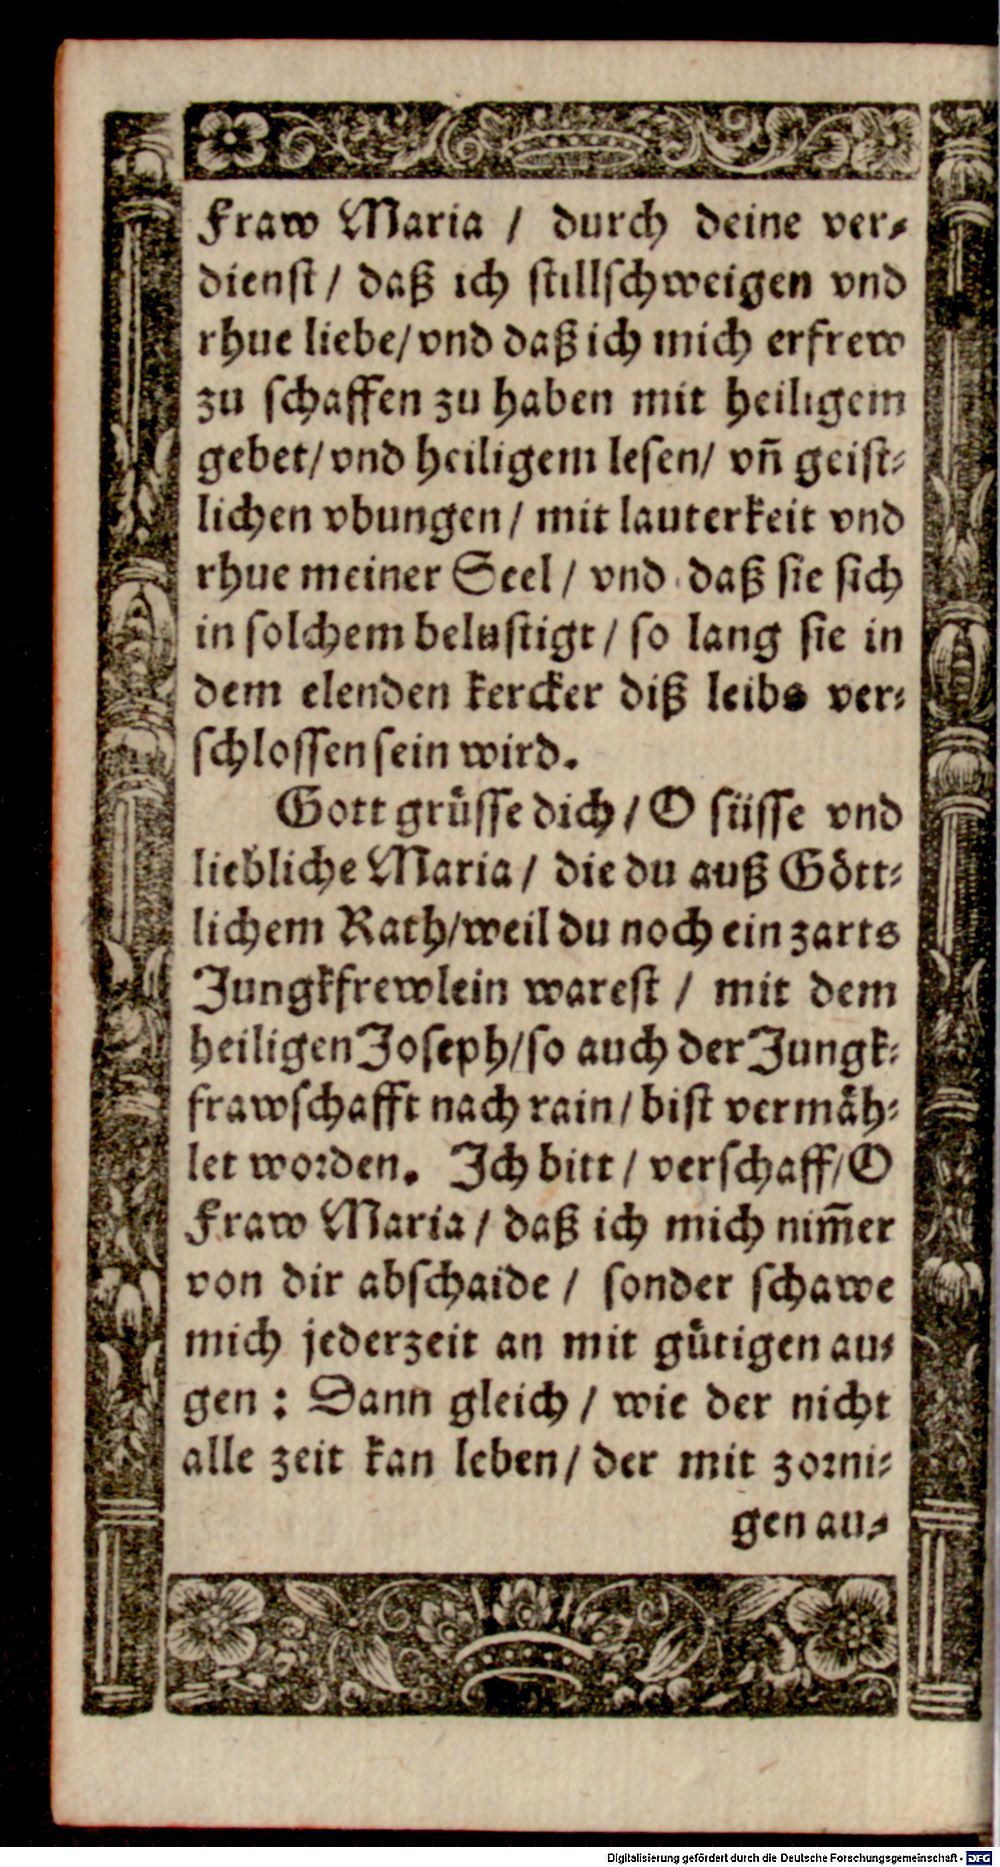 Fraw Maria / durch deine ver⸗
dienst / daß ich stillschweigen vnd
rhue liebe / vnd daß ich mich erfrew
zu schaffen zu haben mit heiligem
gebet / vnd heiligem lesen / vñ geist⸗
lichen vbungen / mit lauterkeit vnd
rhue meiner Seel / vnd daß sie sich
in solchem belustigt / so lang sie in
dem elenden kercker diß leibs ver⸗
schlossen sein wird.
Gott grüsse dich / O süsse vnd
liebliche Maria / die du auß Gött⸗
lichem Rath / weil du noch ein zarts
Jungkfrewlein warest / mit dem
heiligen Joseph / so auch der Jungk⸗
frawschafft nach rain / bist vermäh⸗
let worden. Ich bitt / verschaff / O
Fraw Maria / daß ich mich nim̃er
von dir abschaide / sonder schawe
mich jederzeit an mit gütigen au⸗
gen : Dann gleich / wie der nicht
alle zeit kan leben / der mit zorni⸗
gen au⸗
Digitalisierung gefördert durch die Deutsche Forschungsgemeinschaft - DFG